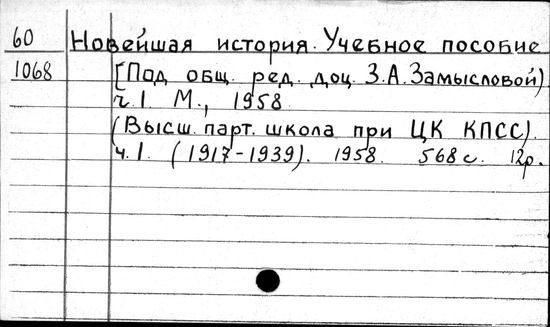 60 Новейшая история. Учебное пособие
1068 [Под общ. ред. доц. З.А.Замысловой)
ч.1 М., 1958
(Высш. парт. школа при ЦК КПСС).
ч.1. (1917-1939). 1958. 568 с. 12р.